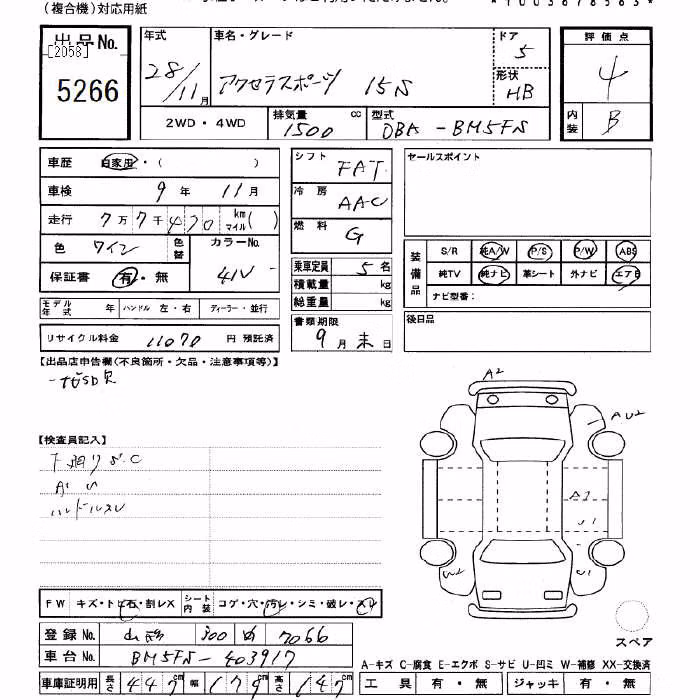 (複合機)対応用紙
出品No. 年式 車名・グレード ドア 評価点
[2058] 28/11月 アクセラスポーツ 15S 5 4
5266 形状 HB
2WD・4WD 排気量 1500 cc 型式 DBA-BM5FS 内装 B
車歴 自家用・( ) シフト FAT セールスポイント
車検 9年 11月 冷房 AAC
走行 7万7千470 km マイル( ) 燃料 G
色 ワイン 色替 カラーNo. 41V 装備品 S/R 純A/W P/S P/W ABS
保証書 有・無 乗車定員 5名 純TV 純ナビ 革シート 外ナビ エアB
積載量 kg ナビ型番:
モデル年式 年 ハンドル 左・右 ディーラー・並行 総重量 kg
リサイクル料金 11070 円 預託済 書類期限 9月末日 後日品
【出品店申告欄(不良箇所・欠品・注意事項等)】
SD欠
A2
AU2
【検査員記入】
ハンドルスレ
W2
FW キズ・トビ石・割レX シート内装 コゲ・穴・汚レ・シミ・破レ・スレ
登録No. 300 7066 スペア
車台No. BM5FS-403917 A-キズ C-腐食 E-エクボ S-サビ U-凹ミ W-補修 XX-交換済
車庫証明用 長さ 447cm 幅 179cm 高さ 147cm 工具 有・無 ジャッキ 有・無